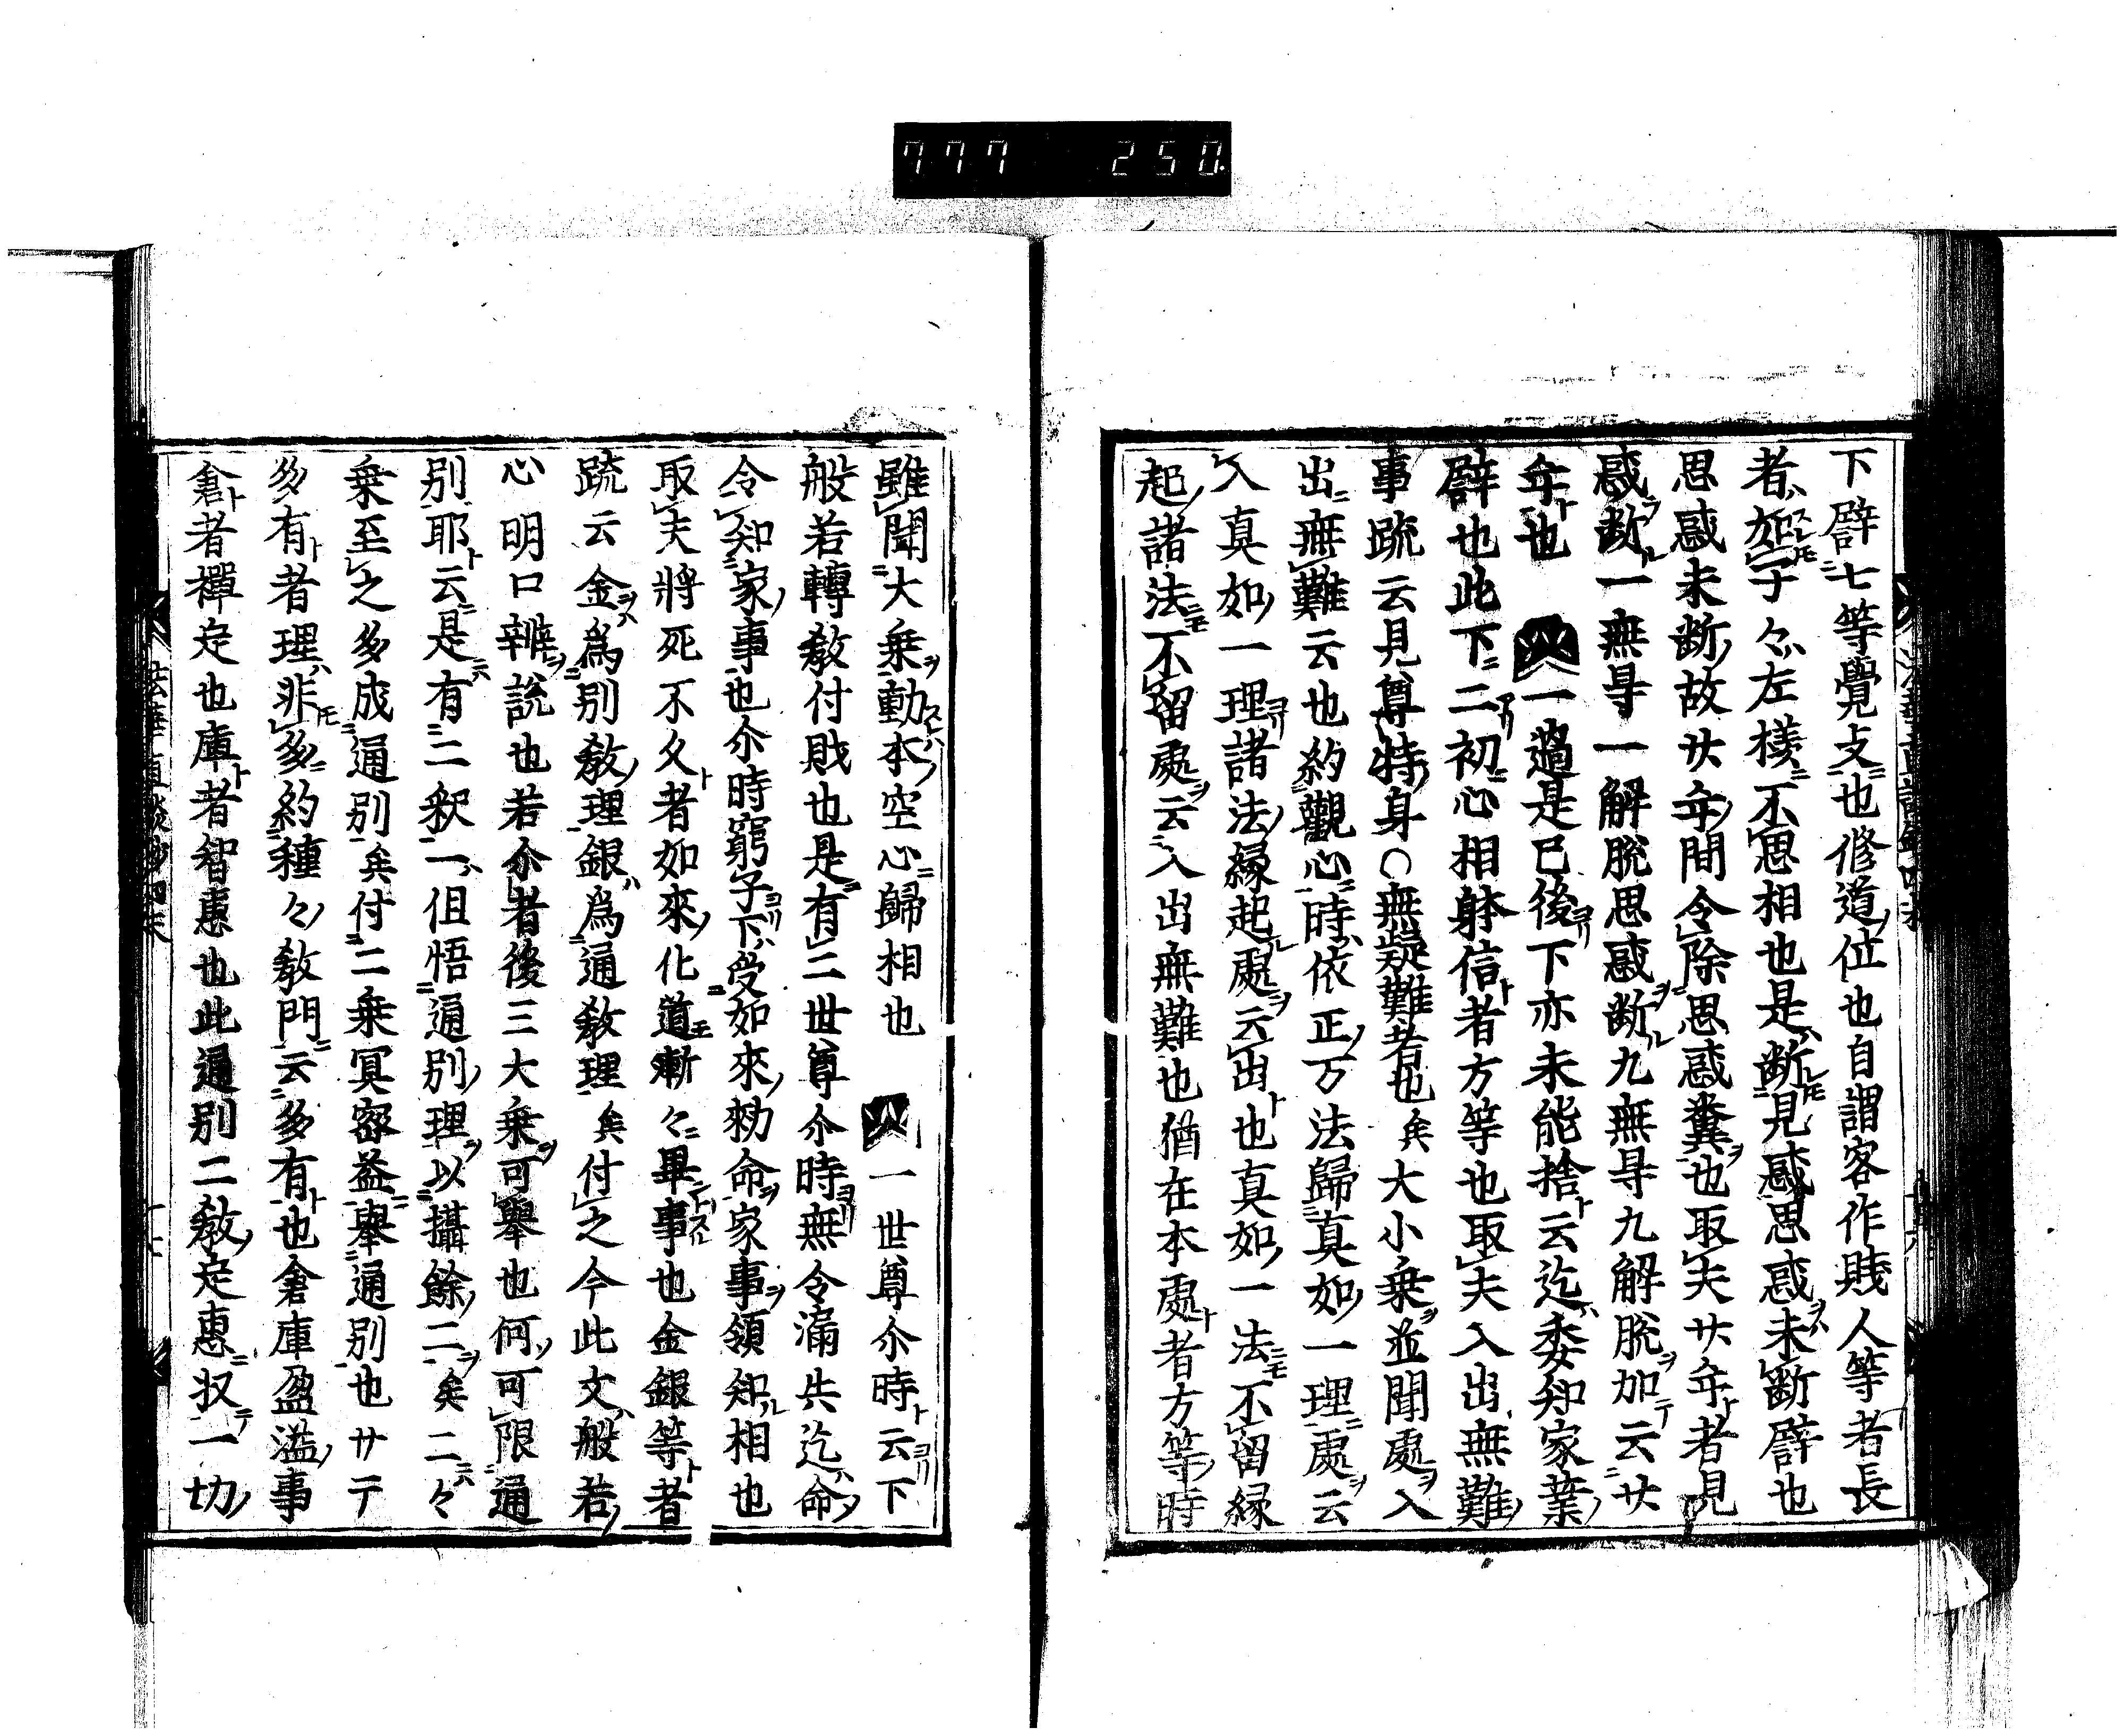 777 250.
下譬七等覺支也修道位也自謂客作賤人等者長
者如子々左樣不思相也是断見惑思惑未断譬也
思惑未断故廿年間令除思惑糞也取夫廿年者見
惑断一無㝵一解脱思惑断九無㝵九解脱加云廿
年也 一過是已後下亦未能捨云迄委知家業
譬也此下二初心相躰信者方等也取夫入出無難
事䟽云見尊特身○無疑難者也矣大小乗並聞處入
出無難云也約觀心時依正万法歸真如一理處云
入真如一理諸法縁起處云出也真如一法不留縁
起諸法不留處云入出無難也猶在本處者方等時
雖聞大乗動本空心歸相也 一世尊尒時云下
般若轉教付賎也是有二世尊尒時無令滿共迄命
令知家事也尒時窮子下受如來勑命家事領知相也
取夫將死不久者如來化道漸々畢事也金銀等者
䟽云金為別教理銀為通教理矣付之今此文般若
心明口辨説也若尒者後三大乗可舉也何可限通
別耶云是有二釈一但悟通別理以攝餘二矣二々
乗至之多成通別矣付二乗冥密益舉通別也サテ
多有者理非多約種々教門云多有也倉庫盈溢事
倉者禪㝎也庫者智惠也此通別二教㝎惠収一切